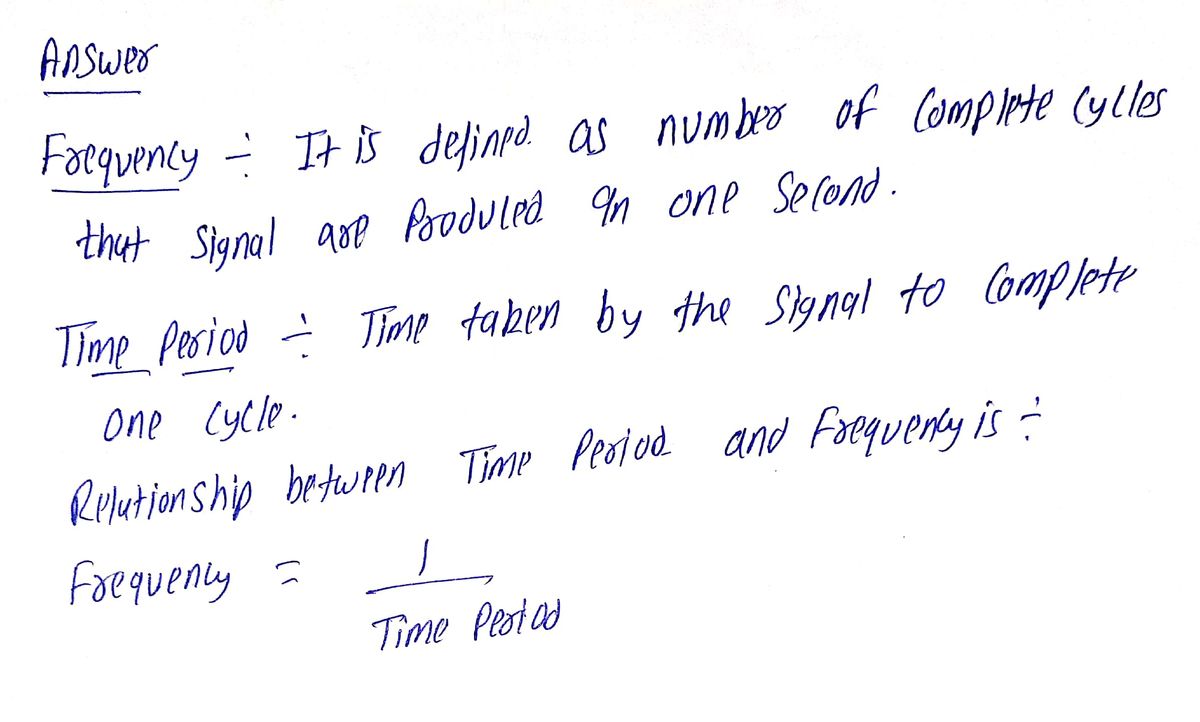 Answer
Frequency ÷ It is defined as number of complete cycles
that signal are Produced in one second.
Time Period ÷ Time taken by the signal to complete
one cycle.
Relationship between Time Period and Frequency is ÷
Frequency = 1
Time Period